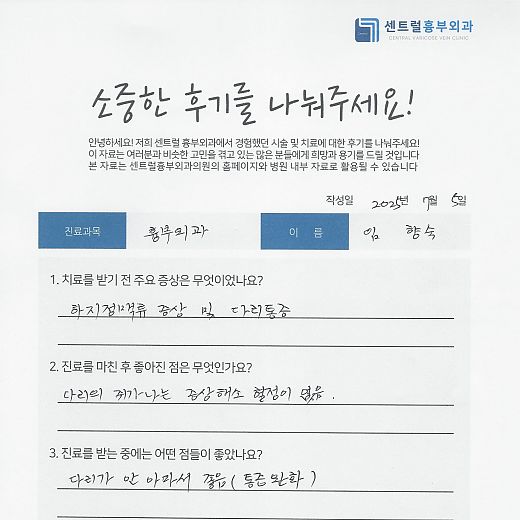 센트럴흉부외과
CENTRAL VARICOSE VEIN CLINIC
소중한 후기를 나눠주세요!
안녕하세요! 저희 센트럴 흉부외과에서 경험했던 시술 및 치료에 대한 후기를 나눠주세요!
이 자료는 여러분과 비슷한 고민을 겪고 있는 많은 분들에게 희망과 용기를 드릴 것입니다
본 자료는 센트럴흉부외과의원의 홈페이지와 병원 내부 자료로 활용될 수 있습니다
작성일 2025년 7월 5일
진료과목 흉부외과 이 름 임 향 숙
1. 치료를 받기 전 주요 증상은 무엇이었나요?
하지정맥류 증상 및 다리통증
2. 진료를 마친 후 좋아진 점은 무엇인가요?
다리의 쥐가나는 증상해소 혈전이 없음.
3. 진료를 받는 중에는 어떤 점들이 좋았나요?
다리가 안 아파서 좋음 (통증완화)